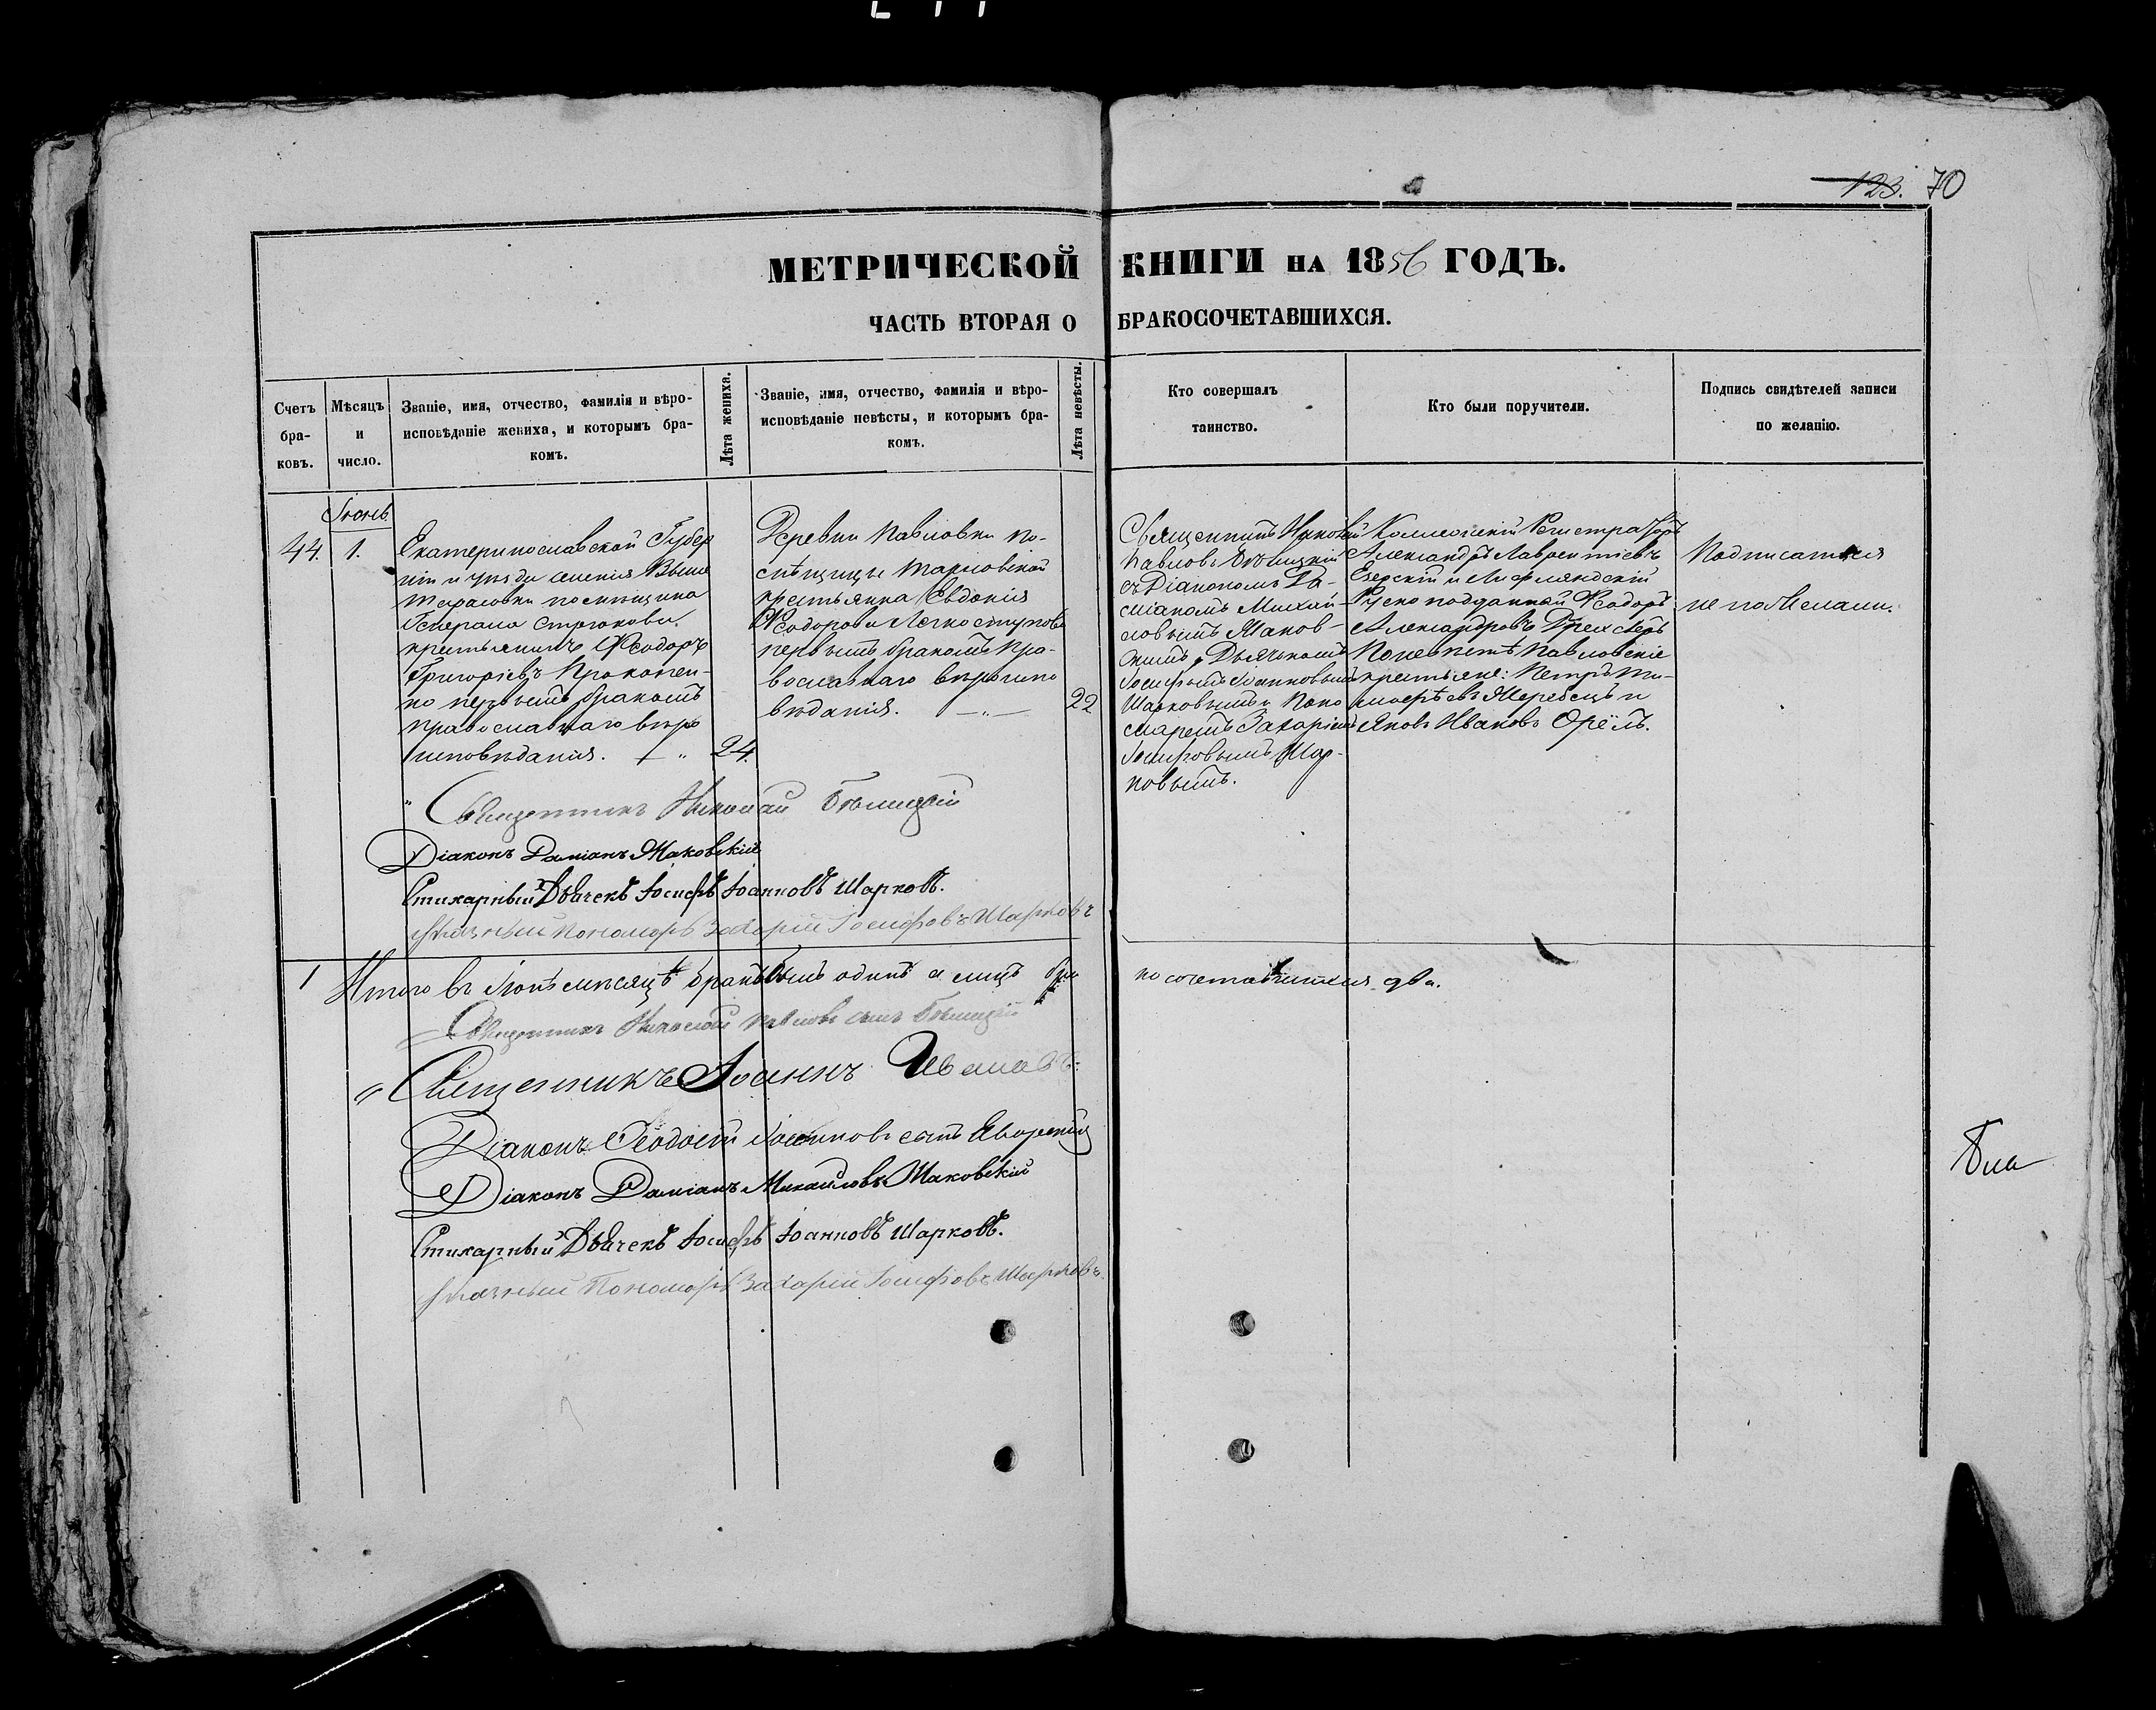 123. 70
МЕТРИЧЕСКОЙ КНИГИ НА 1856 ГОДЪ.
ЧАСТЬ ВТОРАЯ О БРАКОСОЧЕТАВШИХСЯ.
Счетъ бра-
ковъ.
Мѣсяцъ
и
число.
Званіе, имя, отчество, фамилія и вѣро-
исповѣданіе жениха, и которымъ бра-
комъ.
Лѣта жениха.
Званіе, имя, отчество, фамилія и вѣро-
исповѣданіе невѣсты, и которымъ бра-
комъ.
Лѣта невѣсты.
Кто совершалъ
таинство.
Кто были поручители.
Подпись свидѣтелей записи
по желанію.
Іюнь
44. 1.
Екатеринославской Губер
ніи и уѣзда имѣнія Выше
тарасовки помѣщика
Генерала Стрюкова,
крестьянинъ Феодоръ
Григоріевъ Прокопен-
ко первымъ бракомъ
православнаго вѣро
исповѣданія.
24.
Деревни Павловки по-
мѣщицы Марковской
крестьянка Евдокія
Феодорова Легкоступова
первымъ бракомъ пра-
вославнаго вѣроиспо
вѣданія.
22
Священникъ Николай
Павловъ Бѣлицкій
съ Діакономъ Да-
міаномъ Михай-
ловымъ Маков-
скимъ, Дьячкомъ
Іосифомъ Іоанновымъ
Шарковымъ и Поно
маремъ Захаріемъ
Іосифовымъ Шар-
ковымъ.
Коллежскій Регистраторъ
Александръ Лаврентіевъ
Езерскій и Лифляндскій
Руско подданной Феодоръ
Александровъ
Павловскіе
крестьяне: Петръ Ти-
мофѣевъ Жеребецъ и
Яковъ Ивановъ Орёлъ.
Подписатся
не пожелали.
Священникъ Николай Бѣлицкій
Діаконъ Даміанъ Маковскій
Стихарный Дьячекъ Іосифъ Іоанновъ Шарковъ.
Пономарь Захарій Іосифовъ Шарковъ
1 Итого въ Іюнѣ мѣсяцѣ бракъ былъ одинъ а лицъ бра
косочетавшихся два.
Священникъ Николай Павловъ сынъ Бѣлицкій
Священникъ Іоаннъ
Діаконъ Феодосій Іоанновъ сынъ Яворскій
Діаконъ Даміанъ Михайловъ Маковскій
Стихарный Дьячекъ Іосифъ Іоанновъ Шарковъ.
Пономарь Захарій Іосифовъ Шарковъ